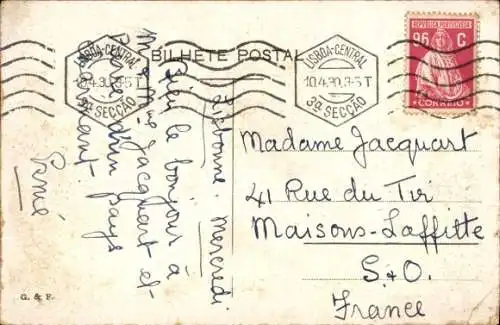 BILHETE POSTAL
LISBOA-CENTRAL
10.4.30.3-5 T
3ª SECÇÃO
LISBOA-CENTRAL
10.4.30.3-5 T
3ª SECÇÃO
REPUBLICA PORTUGUESA
96 C.
CORREIO
Lisbonne. Mercredi.
Bien le bonjour à
Mr & Mme Jacquart et
d'un pays
René
Madame Jacquart
41 Rue du Tir
Maisons-Laffitte
S&O.
France
G. & F.